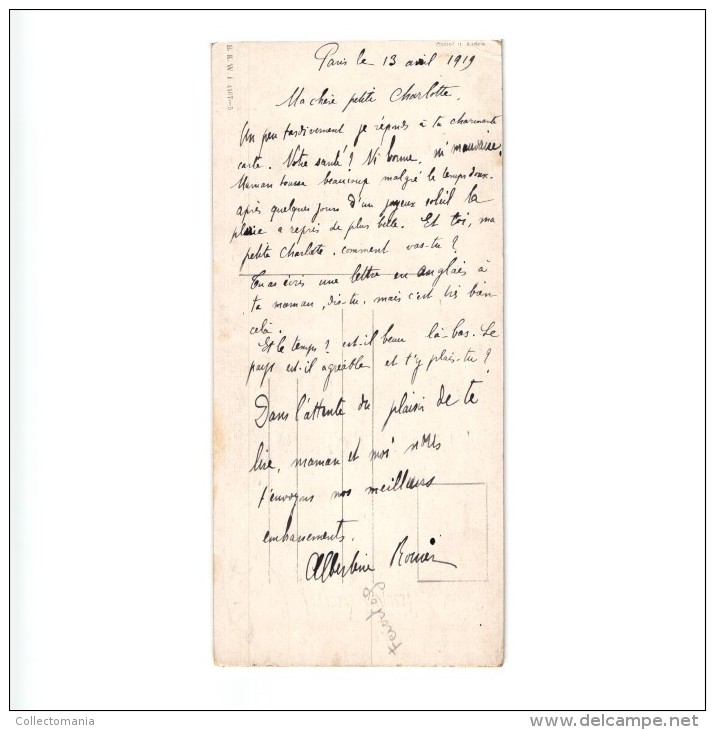 Paris le 13 avril 1919
Ma chère petite Charlotte.
Un peu tardivement je réponds à ta charmante
carte. Votre santé? Ni bonne, ni mauvaise.
Maman tousse beaucoup malgré le temps doux.
après quelques jours d'un joyeux soleil la
pluie a repris de plus belle. Et toi, ma
petite Charlotte. comment vas-tu?
Tu as écris une lettre en anglais à
ta maman, dis-tu. mais c'est très bien
celà.
Et le temps? est-il beau là-bas. Le
pays est-il agréable et t'y plais-tu?
Dans l'attente du plaisir de te
lire, maman et moi nous
t'envoyons nos meilleurs
embrassements.
Albertine
Collectomania
www.delcampe.net